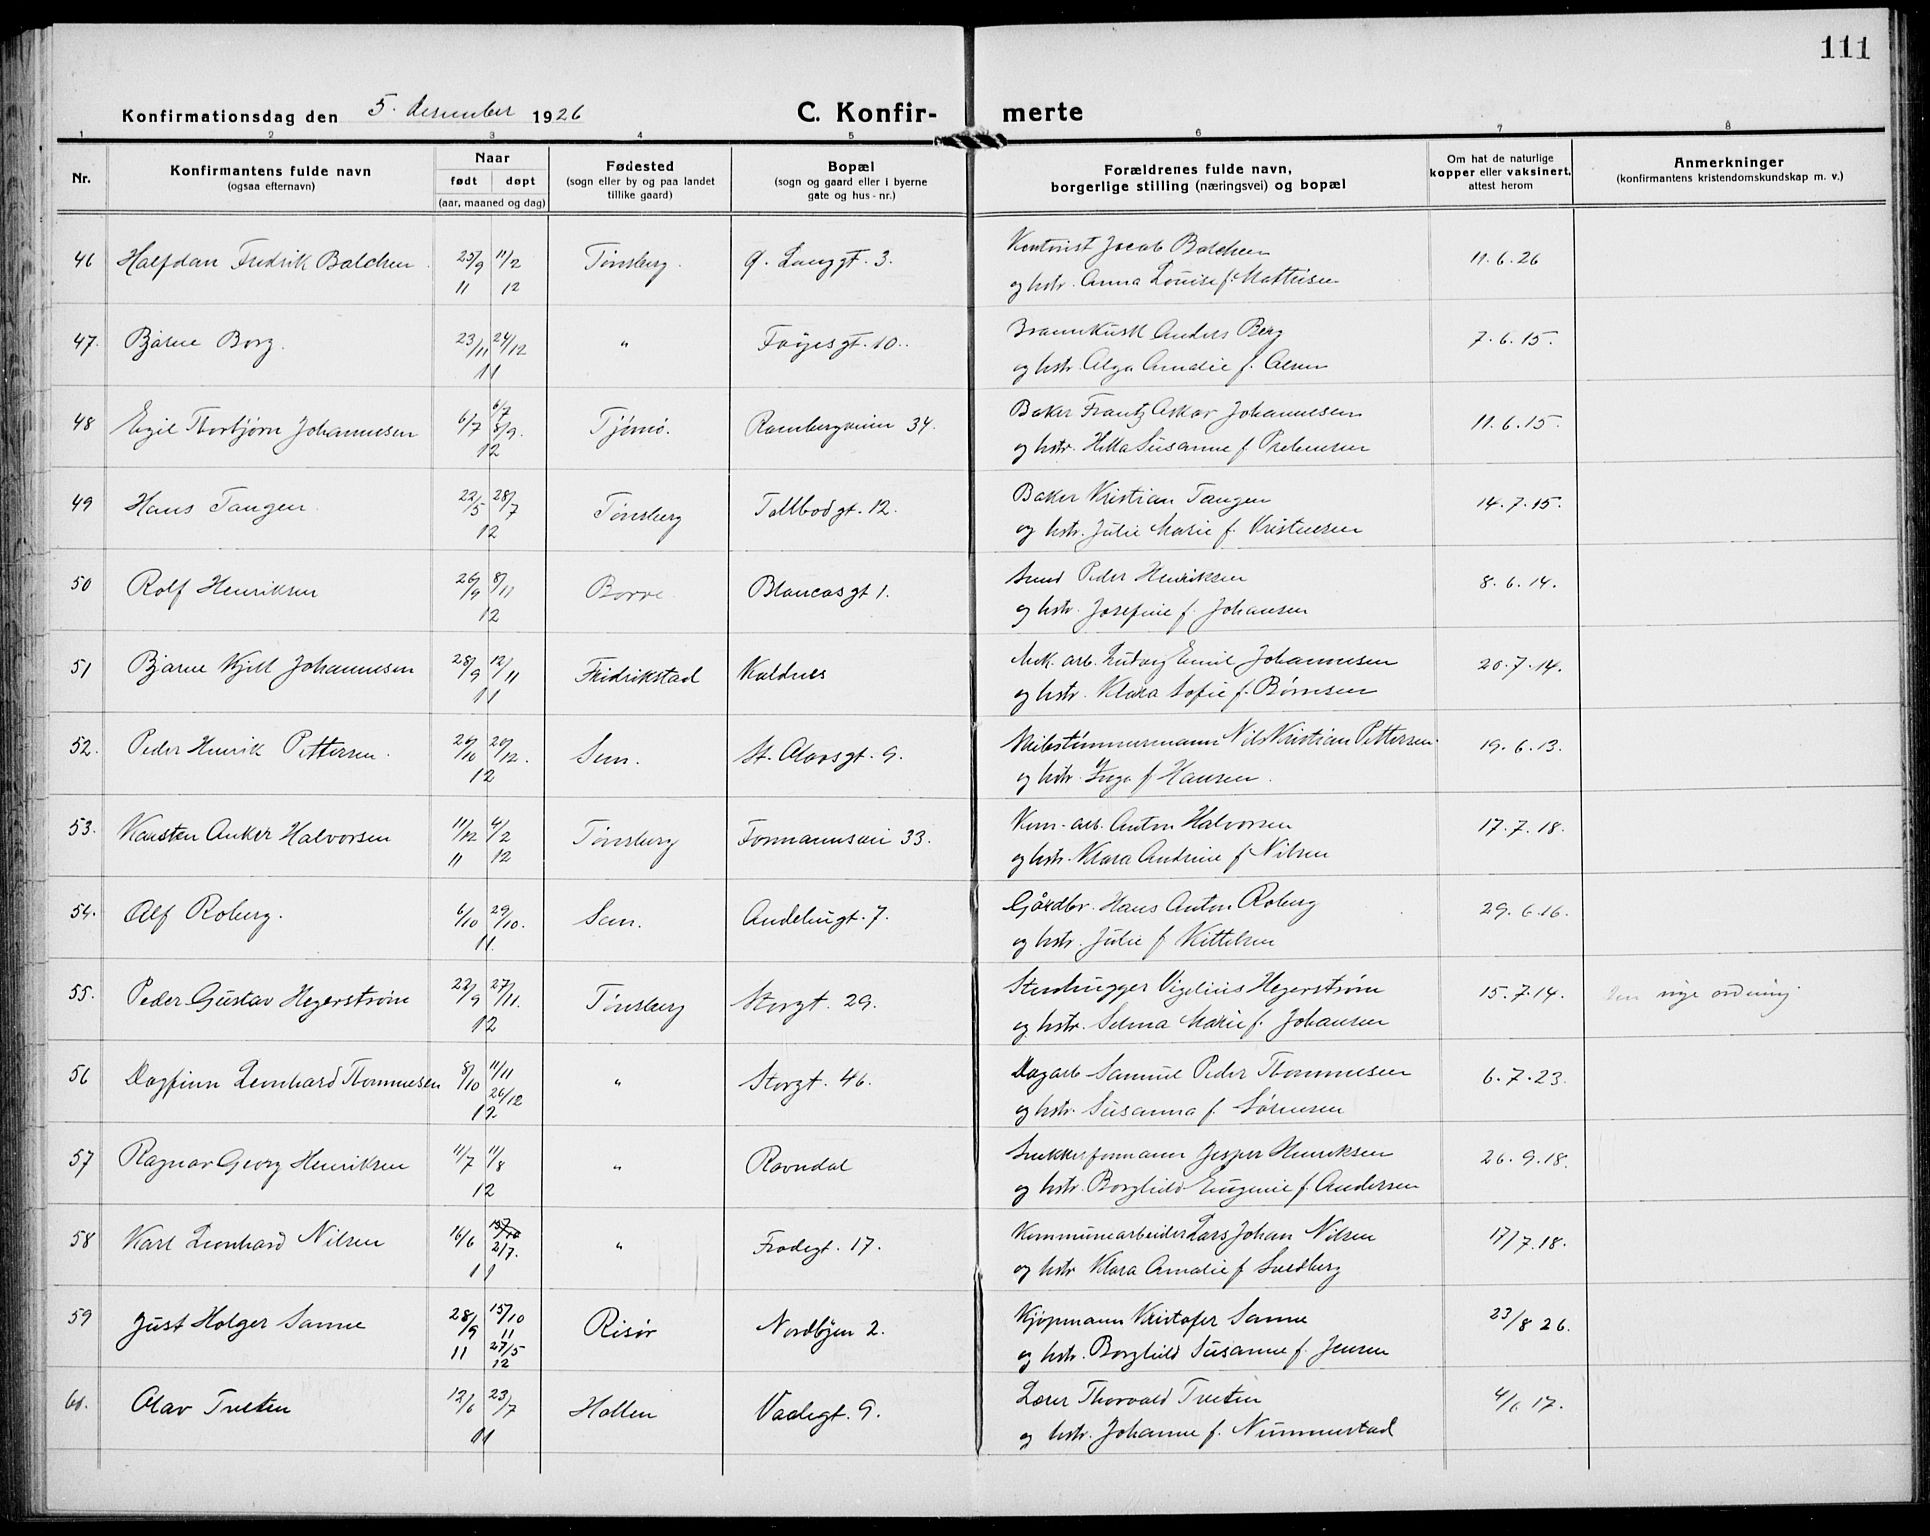 111
Konfirmationsdag den 5. desember 1926 C. Konfir- merte
1 2 3 4 5 6 7 8
Nr. Konfirmantens fulde navn (ogsaa efternavn) Naar født døpt (aar, maaned og dag) Fødested (sogn eller by og paa landet tillike gaard) Bopæl (sogn og gaard eller i byerne gate og hus-nr.) Forældrenes fulde navn, borgerlige stilling (næringsvei) og bopæl Om hat de naturlige kopper eller vaksinert, attest herom Anmerkninger (konfirmantens kristendomskundskap m. v.)
46 Halfdan Fredrik Balchen 25/9 11 11/2 12 Tønsberg. Langgt. 3. Kontorist Jacob Balchen 11.6.26
og hstr. Anna Louise f. Mathisen
47. Bjarne Borg. 23/11 24/12 11 " Føyesgt. 10. Anders Berg 7.6.15.
og hstr. Olga Amalie f. Olsen
48 Egil Thorbjørn Johannesen 6/7 6/7 8/9. 12 Tjømø. Rambergveien 34. Baker Frantz Oskar Johannesen 11.6.15.
og hstr. Hilla Susanne f. Prebensen
49 Hans Tangen. 22/5 28/7 12 Tønsberg Tollbodgt. 12. Baker Kristian Tangen 14.7.15.
og hstr. Julie Marie f. Kristensen
50 Rolf Henriksen 26/9 8/11 12 Borre. Blancasgt 1. Smed Peder Henriksen 8.6.14.
og hstr. Josefine f. Johansen
51 Bjarne Kjell Johannesen 28/9 12/11 11 Fredrikstad Kaldnes Mek. arb. Ludvig Emil Johannesen 20.7.14.
og hstr. Klara Sofie f. Børnsen
52. Peder Henrik Pettersen. 20/10 20/12. 12 Sem. St. Olavsgt. 9. Skibstømmermann Nils Kristian Pettersen. 19.6.13.
og hstr. Inga f Hansen.
53. Karsten Anker Halvorsen 11/12 11 4/2 12 Tønsberg Formannsvei 33. Kom-arb. Anton Halvorsen 17.7.18.
og hstr. Klara Andrine f Nilsen
54. Alf Roberg. 6/10 29/10. 11. Sem. Andebugt. 7. Gårdbr. Hans Anton Roberg 29.6.16.
og hstr. Julie f Kittelsen
55. Peder Gustav Hegerstrøm 22/9 27/11. 12 Tønsberg Storgt. 29. Stenhugger Vigelius Hegerstrøm 15.7.14. den nye ordning.
og hstr. Selma Marie f. Johansen
56 Dagfinn Leonhard Thommesen 8/10 11/11 26/12 12. " Storgt. 46. Dagarb Samuel Peder Thommesen 6.7.23.
og hstr. Susanna f. Sørensen
57 Ragnar Georg Henriksen 11/7 11/8 12 " Ravndal Snekkerformann Jesper Henriksen 26.9.18.
og hstr. Borghild Eugenie f. Andersen
58 Karl Leonhard Nilsen 16/6 15/10 2/7. 11 " Frodegt. 17. Kommunearbeider Lars Johan Nilsen 17/7.18.
og hstr Klara Amalie f Svedberg
59 Just Holger Sanne 28/9 11 15/10 11 27/5 12 Risør Nordbyen 2. Kjøpmann Kristofer Sanne 23/8 26.
og hstr. Borghild Susanne f. Jensen
60. Olav Tveten 12/6 23/7 11 Hollen Vaalegt. 9. Lærer Thorvald Tveten 4/6 17.
og hstr. Johanne f. Nummestad